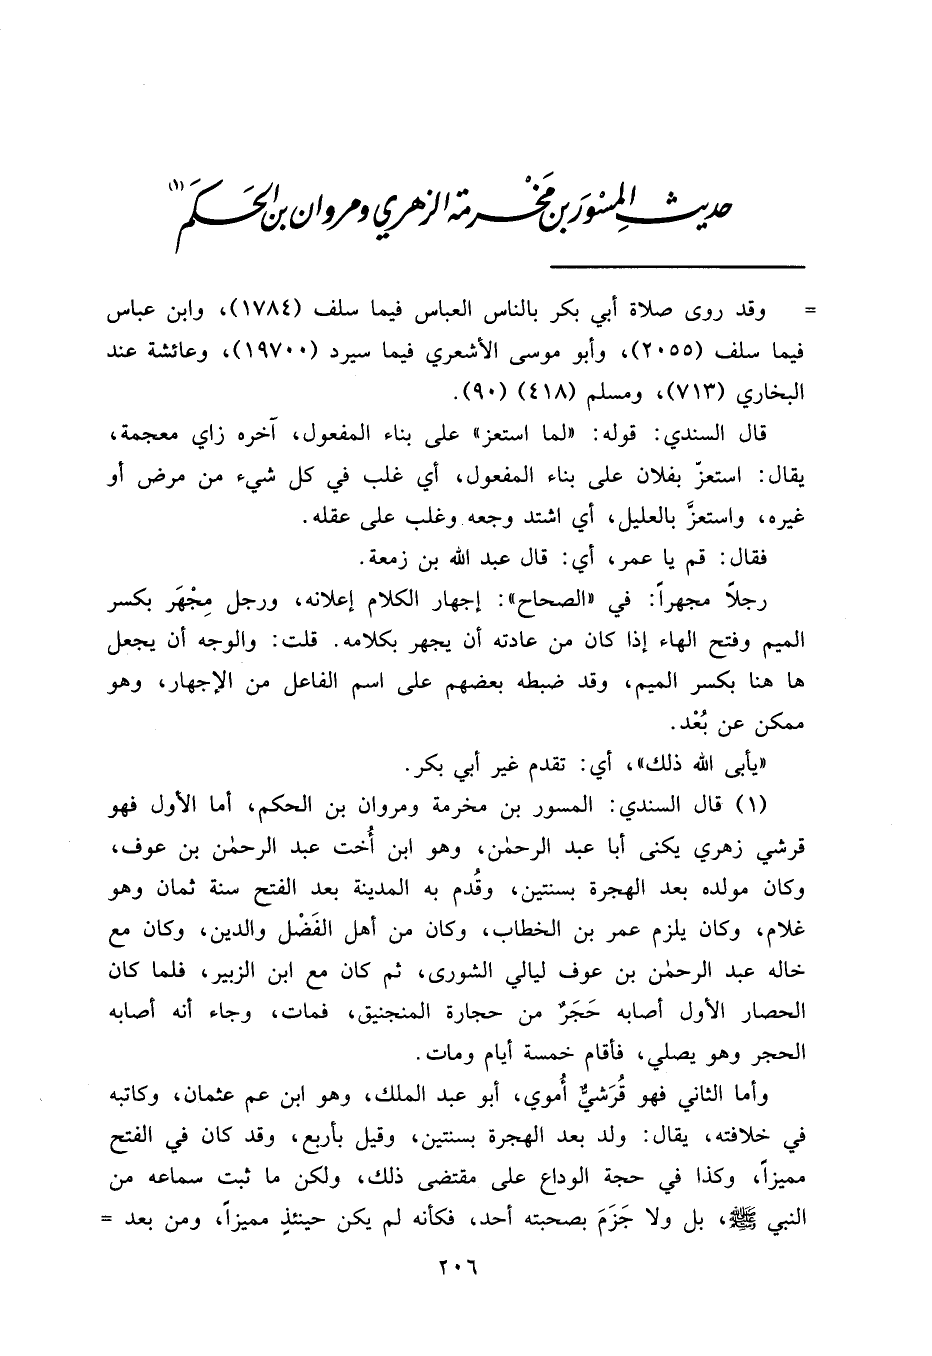 حديث المِسْوَر بن مَخْرمة الزهري ومروان بن الحَكَم (١)
= وقد روى صلاة أبي بكر بالناس العباس فيما سلف (١٧٨٤)، وابن عباس
فيما سلف (٢٠٥٥)، وأبو موسى الأشعري فيما سيرد (١٩٧٠٠)، وعائشة عند
البخاري (٧١٣)، ومسلم (٤١٨) (٩٠).
قال السندي: قوله: «لما استعز» على بناء المفعول، آخره زاي معجمة،
يقال: استعزّ بفلان على بناء المفعول، أي غلب في كل شيء من مرض أو
غيره، واستعزَّ بالعليل، أي اشتد وجعه وغلب على عقله.
فقال: قم يا عمر، أي: قال عبد الله بن زمعة.
رجلاً مجهراً: في «الصحاح»: إجهار الكلام إعلانه، ورجل مِجْهَر بكسر
الميم وفتح الهاء إذا كان من عادته أن يجهر بكلامه. قلت: والوجه أن يجعل
ها هنا بكسر الميم، وقد ضبطه بعضهم على اسم الفاعل من الإجهار، وهو
ممكن عن بُعْد.
«يأبى الله ذلك»، أي: تقدم غير أبي بكر.
(١) قال السندي: المسور بن مخرمة ومروان بن الحكم، أما الأول فهو
قرشي زهري يكنى أبا عبد الرحمٰن، وهو ابن أُخت عبد الرحمٰن بن عوف،
وكان مولده بعد الهجرة بسنتين، وقُدم به المدينة بعد الفتح سنة ثمان وهو
غلام، وكان يلزم عمر بن الخطاب، وكان من أهل الفَضْل والدين، وكان مع
خاله عبد الرحمٰن بن عوف ليالي الشورى، ثم كان مع ابن الزبير، فلما كان
الحصار الأول أصابه حَجَرٌ من حجارة المنجنيق، فمات، وجاء أنه أصابه
الحجر وهو يصلي، فأقام خمسة أيام ومات.
وأما الثاني فهو قُرَشيٌّ أُموي، أبو عبد الملك، وهو ابن عم عثمان، وكاتبه
في خلافته، يقال: ولد بعد الهجرة بسنتين، وقيل بأربع، وقد كان في الفتح
مميزاً، وكذا في حجة الوداع على مقتضى ذلك، ولكن ما ثبت سماعه من
النبي ﷺ، بل ولا جَزَمَ بصحبته أحد، فكأنه لم يكن حينئذٍ مميزاً، ومن بعد =
٢٠٦